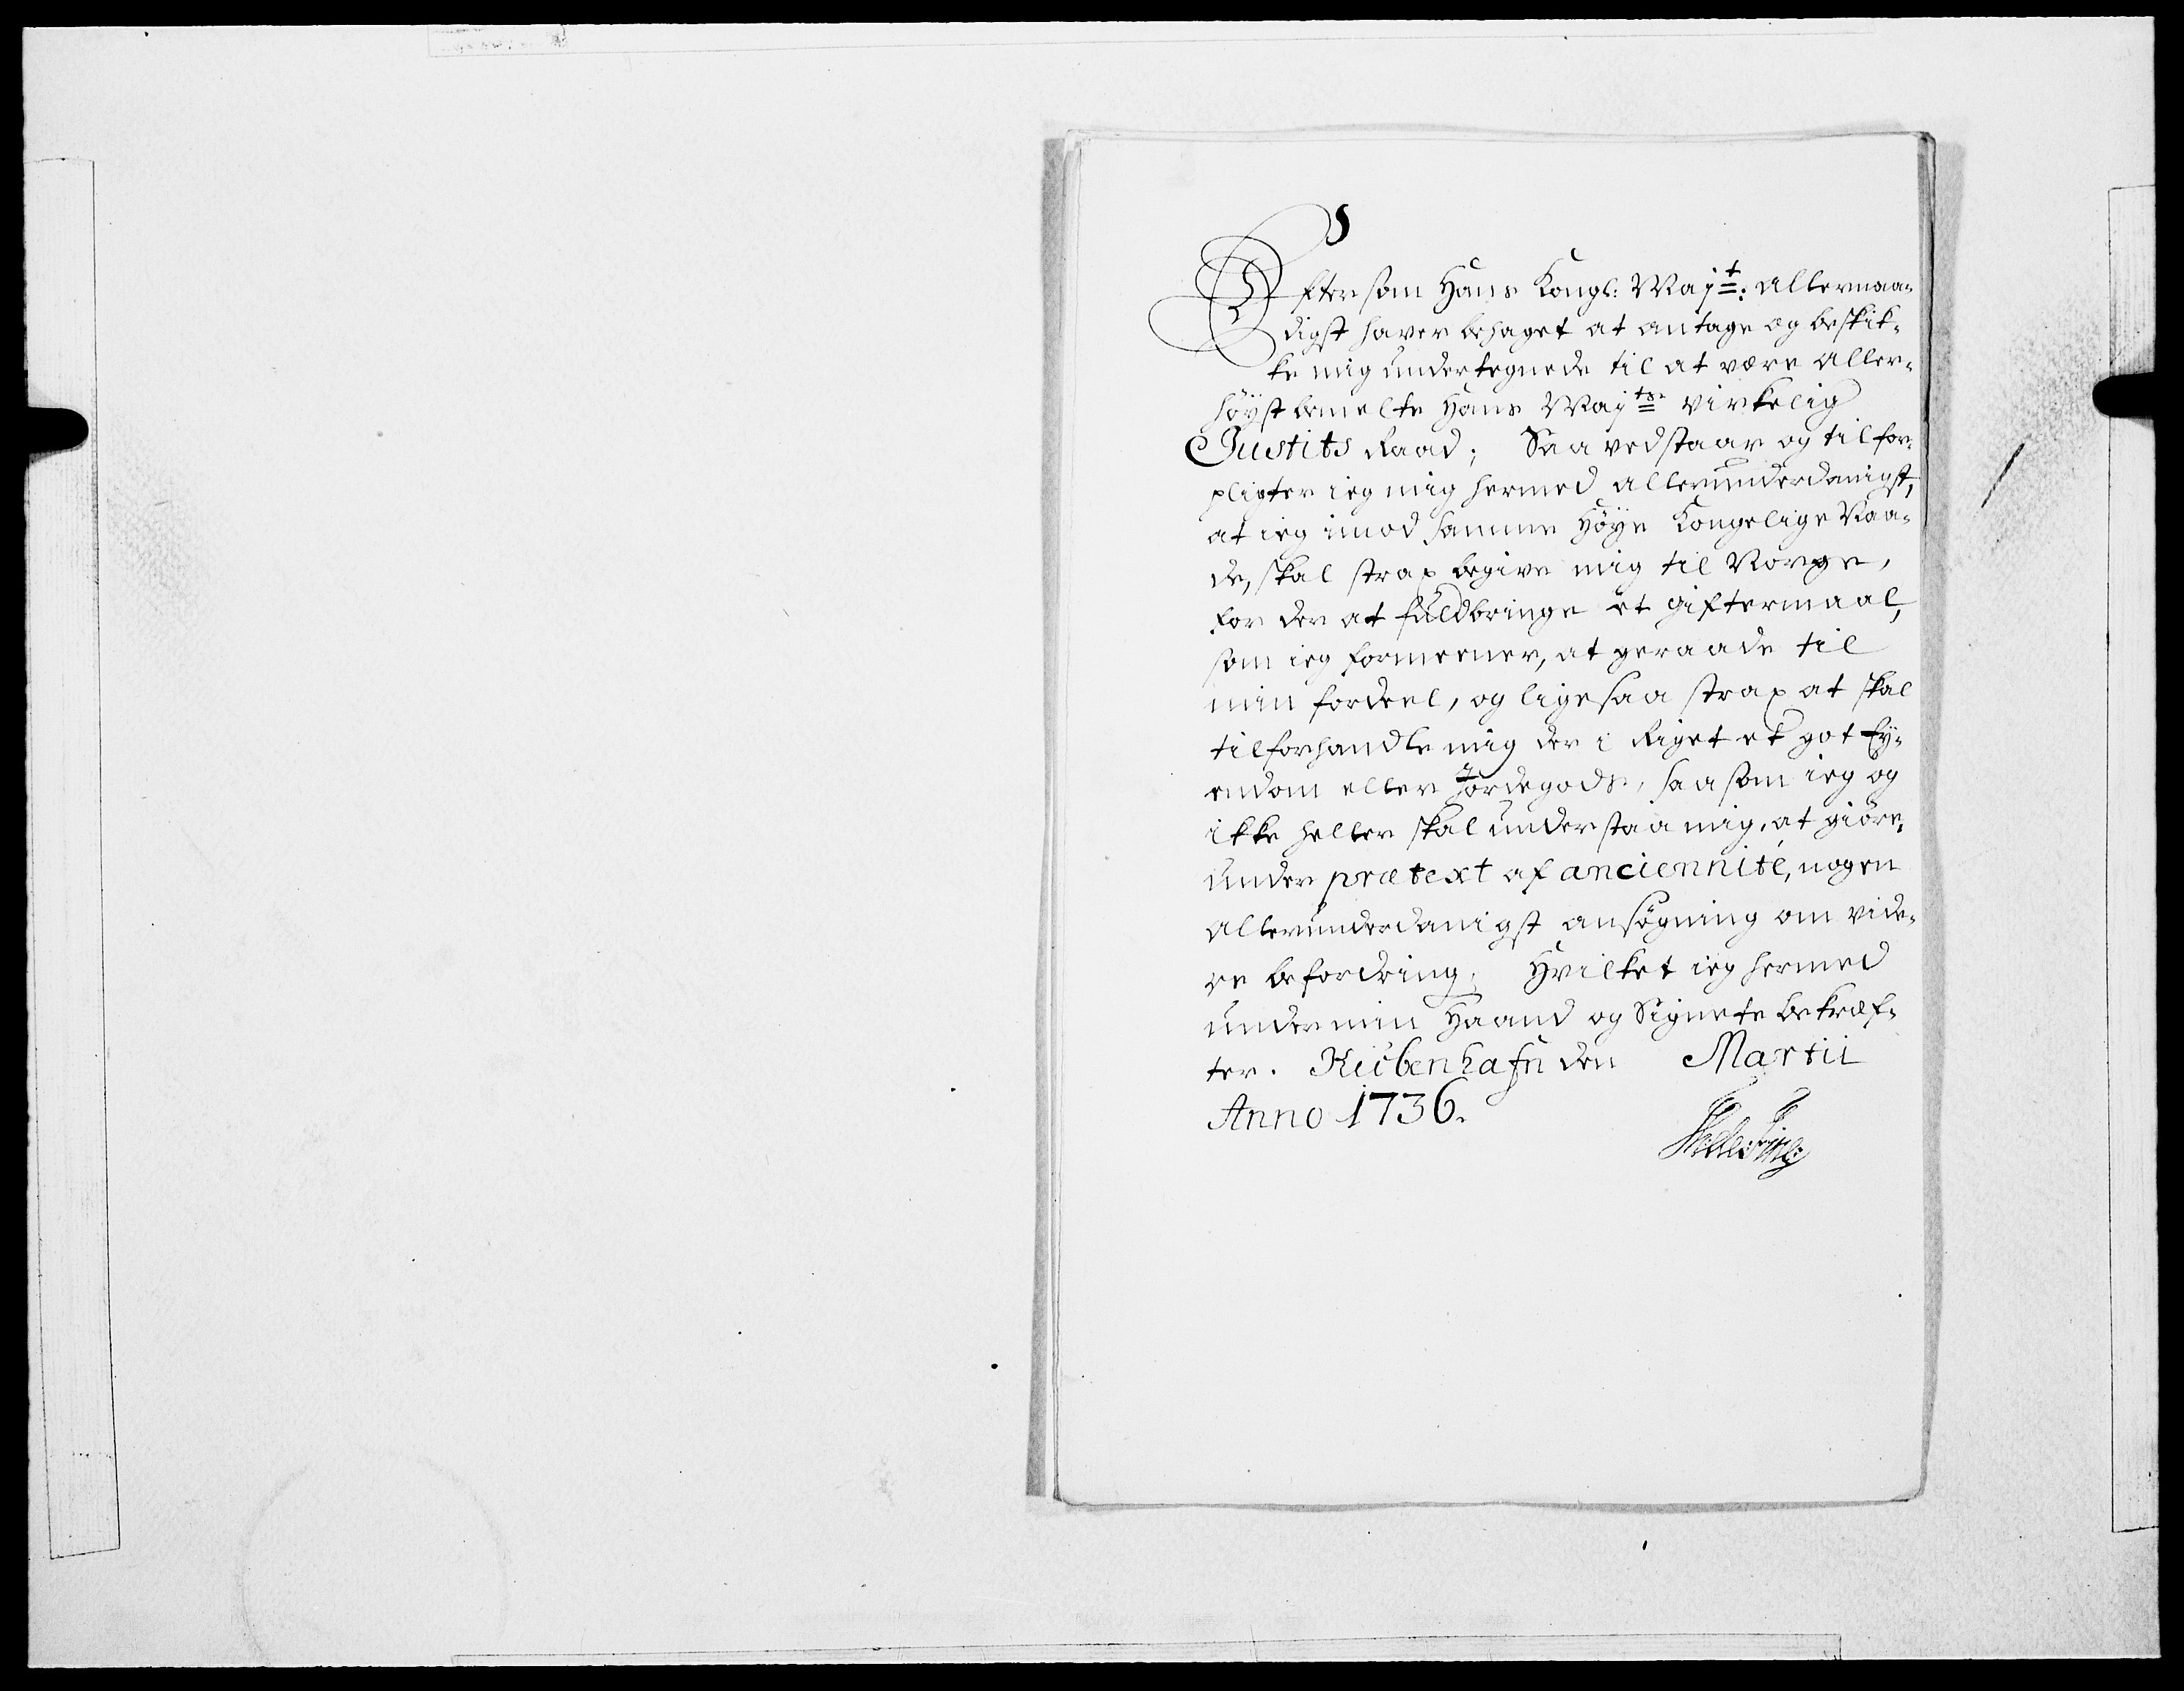 Eftersom Hans Kongl: Majt: Allernaa-
digst haver behaget at antage og beskik-
ke mig undertegnede til at være Aller-
höystbemelte Hans Majts. virkelig
Justits Raad; Saa vedstaar og tilfor-
pligter ieg mig hermed allerunderdanigst,
at ieg imod samme Höye Kongelige Naa-
de, skal strax begive mig til Norge,
for der at fuldbringe et giftermaal,
som ieg formeener, at geraade til
min fordeel, og ligesaa strax at skal
tilforhandle mig der i Riget et got Ey-
endom eller Jordegods, saasom ieg og
ikke heller skal understaa mig, at giöre,
under prætext af anciennité, nogen
allerunderdanigst ansögning om vide-
re befordring; Hvilket ieg hermed
under min Haand og Signete bekræf-
ter. Kiöbenhafn den Martii
Anno 1736.